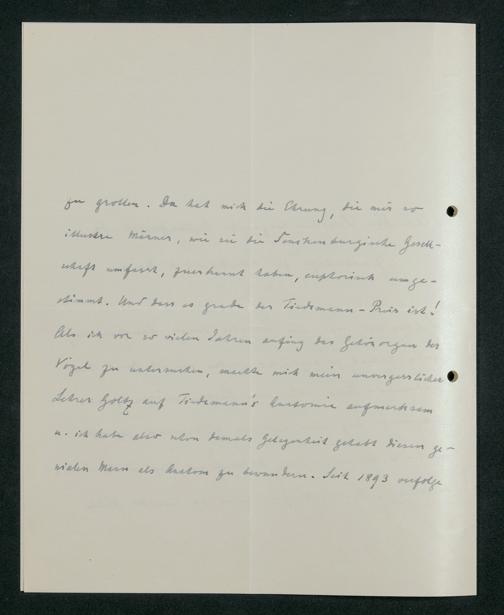 zu grollen. Da hat mich die Ehrung, die mir so
illustre Männer, wie sie die Senckenburgische Gesell-
schaft umfasst, zuerkannt haben, euphorisch umge-
stimmt. Und dass es grade der Tiedemann-Preis ist!
Als ich vor so vielen Jahren anfing das Gehörorgan der
Vögel zu untersuchen, machte mich mein unvergesslicher
Lehrer Goltz auf Tiedemann's Anatomie aufmerksam
u. ich habe also schon damals Gelegenheit gehabt diesen ge-
nialen Mann als Anatom zu bewundern. Seit 1893 verfolge